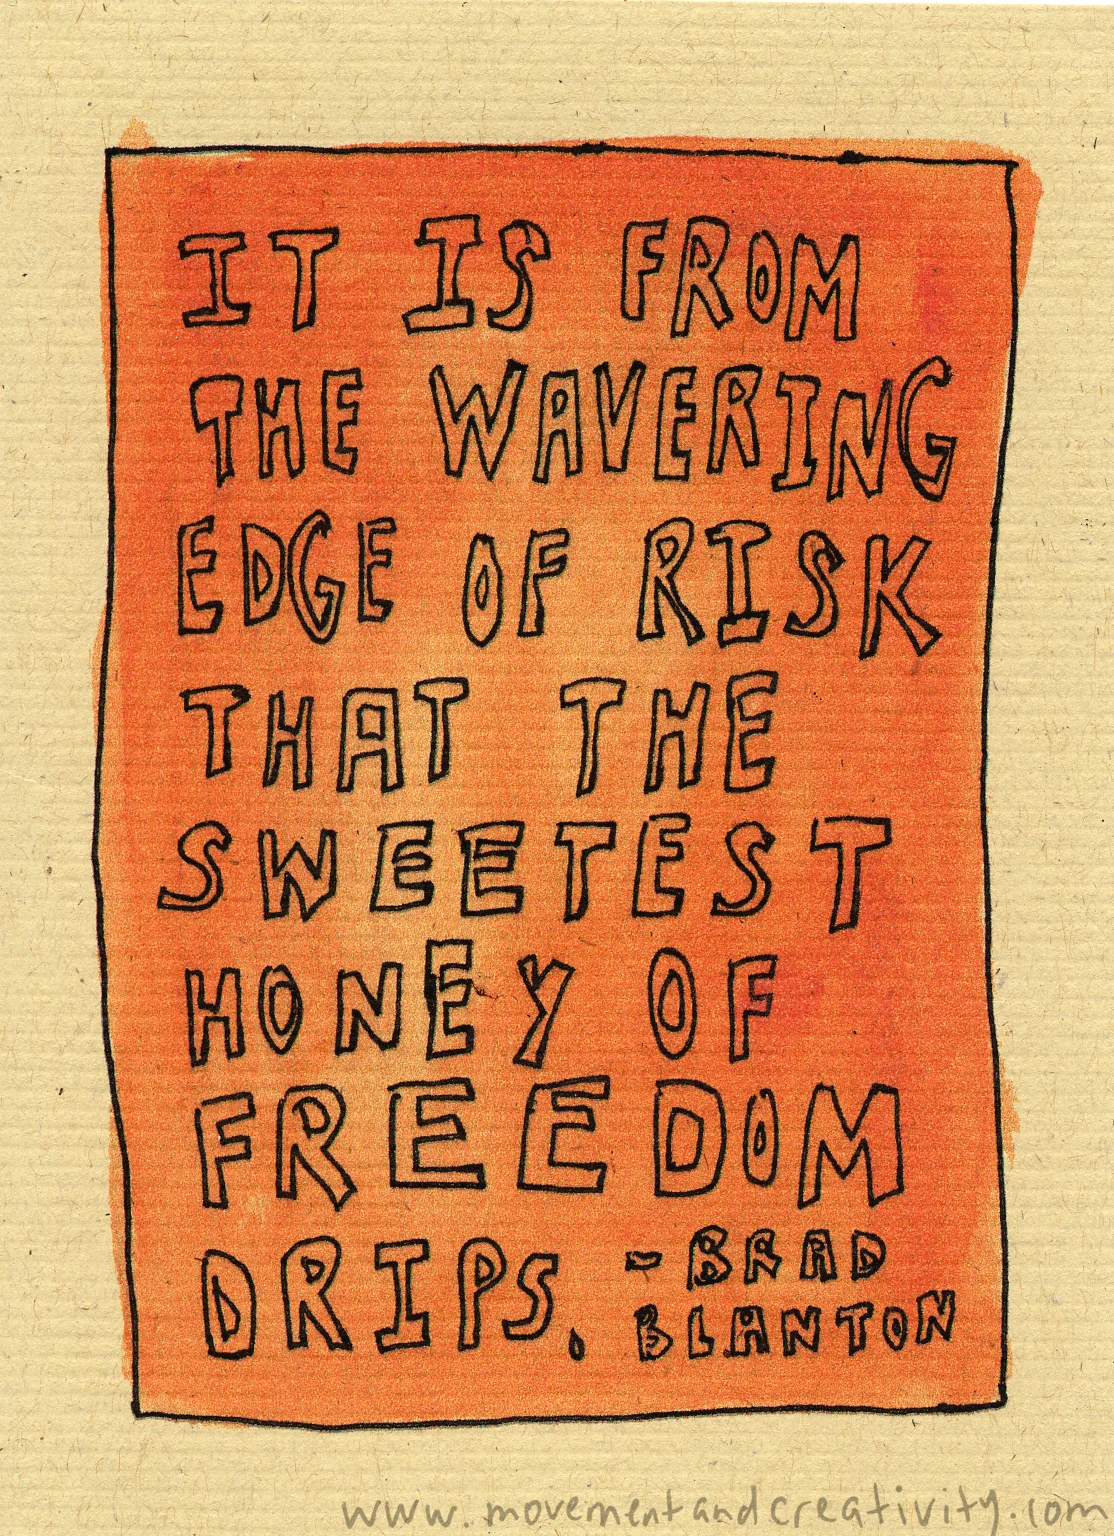 IT IS FROM
THE WAVERING
EDGE OF RISK
THAT THE
SWEETEST
HONEY OF
FREEDOM
DRIPS. - BRAD
BLANTON
www.movementandcreativity.com